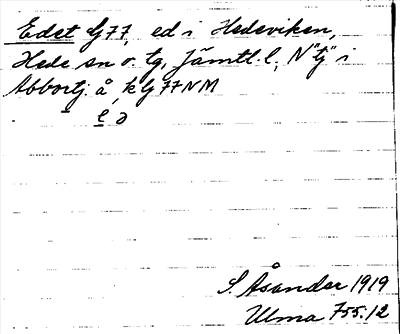 Edet Gj77, ed i Hedeviken,
Hede sn o. tg, Jämtl. l., N "tj" i
Abbortj. å, k Gj77NM
e ə
S. Åsander 1919
Ulma 755:12